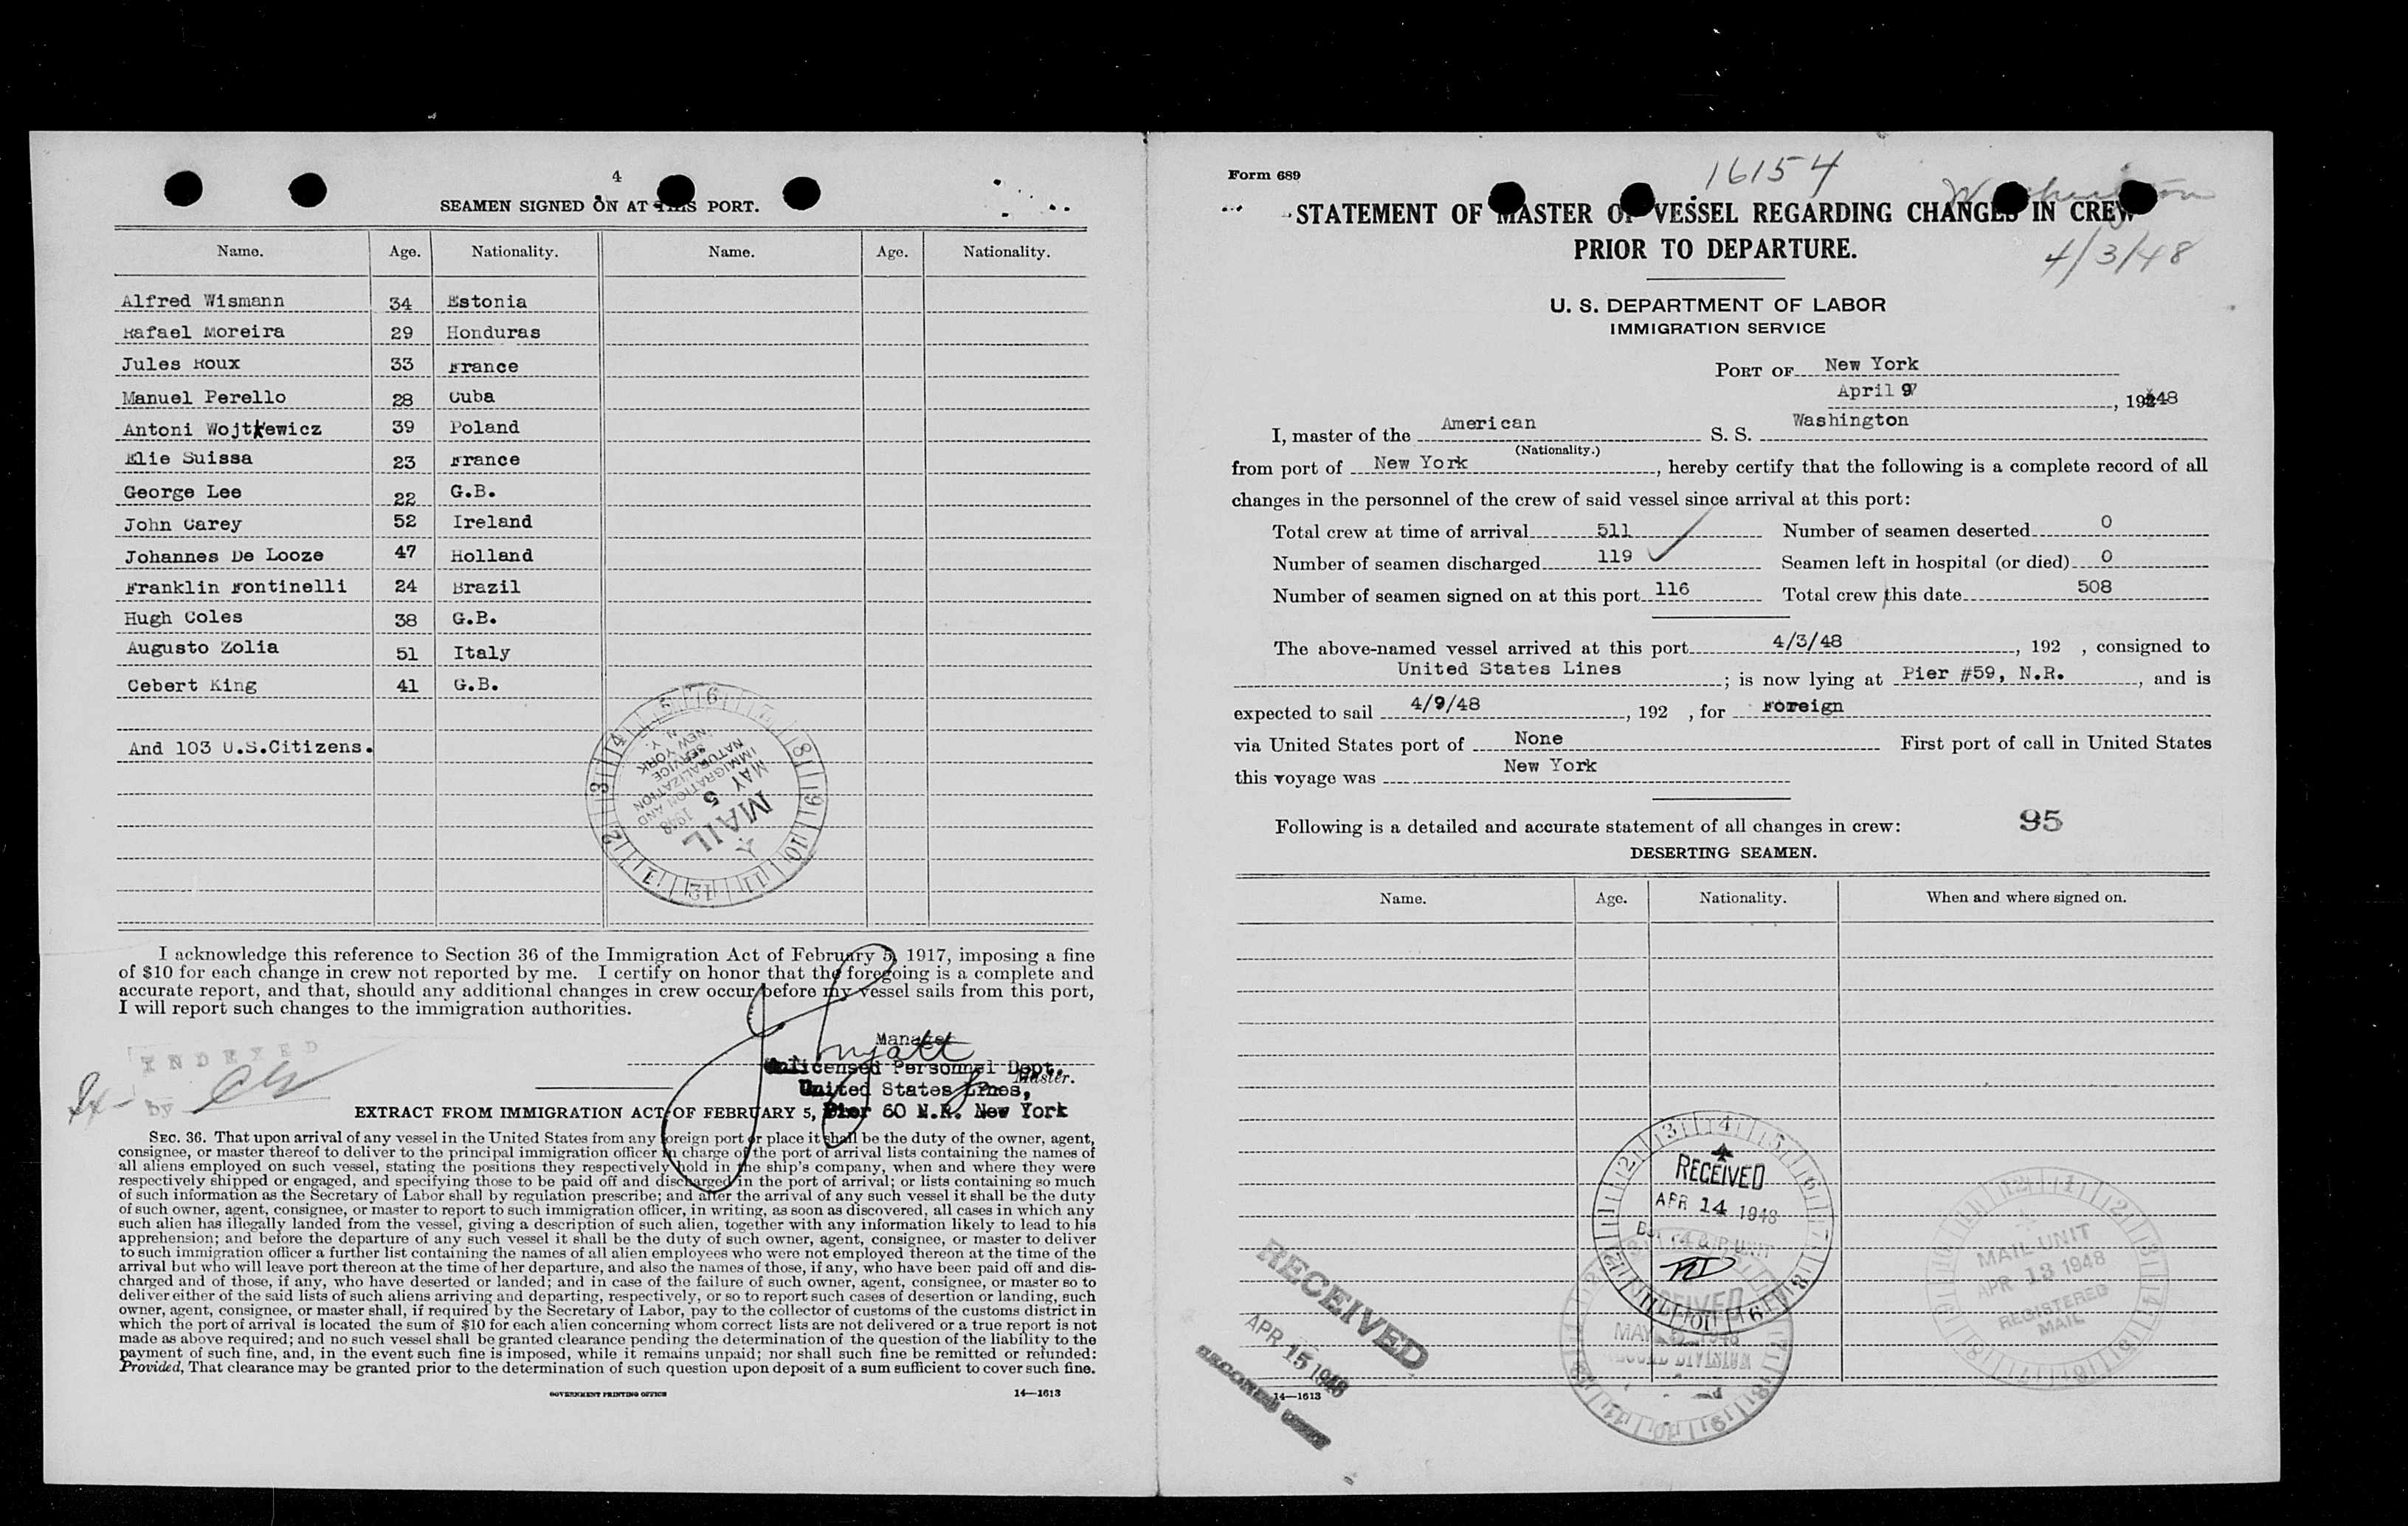 4
SEAMEN SIGNED ON AT THIS PORT.
Name. Age. Nationality. Name. Age. Nationality.
Alfred Wismann 34 Estonia
Rafael Moreira 29 Honduras
Jules Roux 33 France
Manuel Perello 28 Cuba
Antoni Wojtkewicz 39 Poland
Elie Suissa 23 France
George Lee 22 G.B.
John Carey 52 Ireland
Johannes De Looze 47 Holland
Franklin Fontinelli 24 Brazil
Hugh Coles 38 G.B.
Augusto Zolia 51 Italy
Cebert King 41 G.B.
And 103 U.S.Citizens.
MAIL
MAY 5 1948
IMMIGRATION AND
NATURALIZATION
SERVICE
NEW YORK
N. Y.
I acknowledge this reference to Section 36 of the Immigration Act of February 5, 1917, imposing a fine
of $10 for each change in crew not reported by me. I certify on honor that the foregoing is a complete and
accurate report, and that, should any additional changes in crew occur before my vessel sails from this port,
I will report such changes to the immigration authorities.
Manager
Unlicensed Personnel Dept.
Master.
United States Lines,
Pier 60 N.R. New York
INDEXED
by
EXTRACT FROM IMMIGRATION ACT OF FEBRUARY 5,
SEC. 36. That upon arrival of any vessel in the United States from any foreign port or place it shall be the duty of the owner, agent,
consignee, or master thereof to deliver to the principal immigration officer in charge of the port of arrival lists containing the names of
all aliens employed on such vessel, stating the positions they respectively hold in the ship's company, when and where they were
respectively shipped or engaged, and specifying those to be paid off and discharged in the port of arrival; or lists containing so much
of such information as the Secretary of Labor shall by regulation prescribe; and after the arrival of any such vessel it shall be the duty
of such owner, agent, consignee, or master to report to such immigration officer, in writing, as soon as discovered, all cases in which any
such alien has illegally landed from the vessel, giving a description of such alien, together with any information likely to lead to his
apprehension; and before the departure of any such vessel it shall be the duty of such owner, agent, consignee, or master to deliver
to such immigration officer a further list containing the names of all alien employees who were not employed thereon at the time of the
arrival but who will leave port thereon at the time of her departure, and also the names of those, if any, who have been paid off and dis-
charged and of those, if any, who have deserted or landed; and in case of the failure of such owner, agent, consignee, or master so to
deliver either of the said lists of such aliens arriving and departing, respectively, or so to report such cases of desertion or landing, such
owner, agent, consignee, or master shall, if required by the Secretary of Labor, pay to the collector of customs of the customs district in
which the port of arrival is located the sum of $10 for each alien concerning whom correct lists are not delivered or a true report is not
made as above required; and no such vessel shall be granted clearance pending the determination of the question of the liability to the
payment of such fine, and, in the event such fine is imposed, while it remains unpaid; nor shall such fine be remitted or refunded:
Provided, That clearance may be granted prior to the determination of such question upon deposit of a sum sufficient to cover such fine.
GOVERNMENT PRINTING OFFICE 14—1613
Form 689
16154
Washington
STATEMENT OF MASTER OF VESSEL REGARDING CHANGES IN CREW
PRIOR TO DEPARTURE.
4/3/48
U. S. DEPARTMENT OF LABOR
IMMIGRATION SERVICE
PORT OF New York
April 9, 1948
I, master of the American S. S. Washington
(Nationality.)
from port of New York, hereby certify that the following is a complete record of all
changes in the personnel of the crew of said vessel since arrival at this port:
Total crew at time of arrival 511 Number of seamen deserted 0
Number of seamen discharged 119 Seamen left in hospital (or died) 0
Number of seamen signed on at this port 116 Total crew this date 508
The above-named vessel arrived at this port 4/3/48, 192 , consigned to
United States Lines; is now lying at Pier #59, N.R., and is
expected to sail 4/9/48, 192 , for Foreign
via United States port of None First port of call in United States
this voyage was New York
Following is a detailed and accurate statement of all changes in crew: 95
DESERTING SEAMEN.
Name. Age. Nationality. When and where signed on.
RECEIVED
APR 14 1948
MAIL UNIT
APR 13 1948
REGISTERED
MAIL
RECEIVED
APR 15 1948
RECEIVED
MAY 5 1948
DIVISION
14—1613